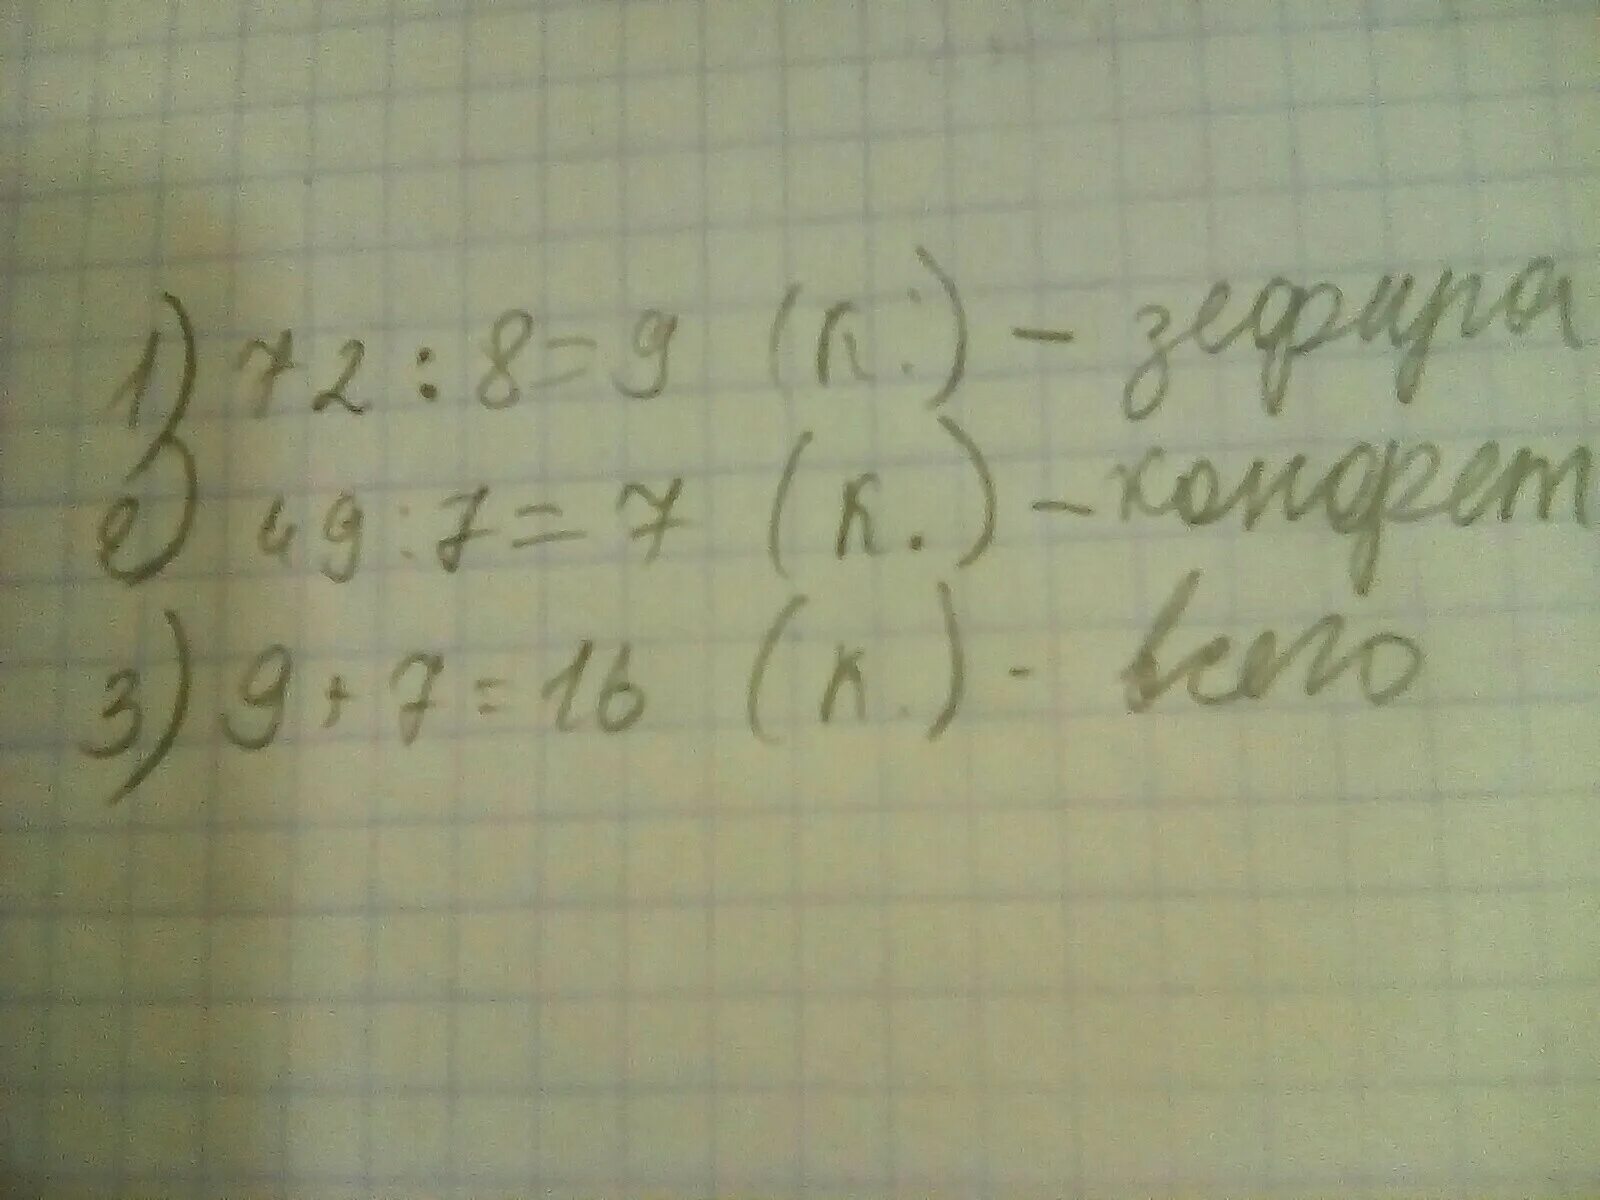 1) 72 : 8 = 9 (к.) - зефира
2) 49 : 7 = 7 (к.) - конфет
3) 9 + 7 = 16 (к.) - всего